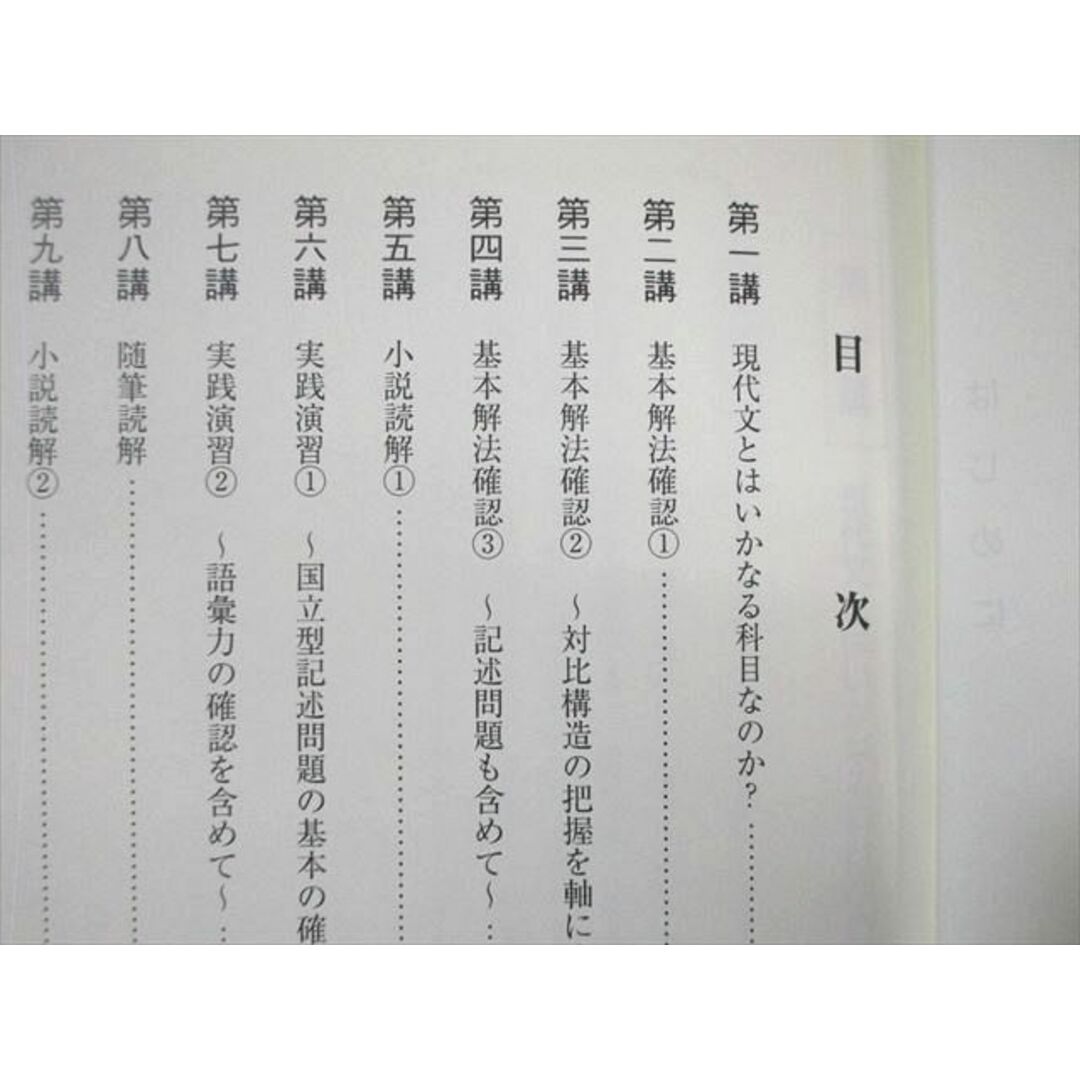 目次
第一講 現代文とはいかなる科目なのか?
第二講 基本解法確認①
第三講 基本解法確認② ～対比構造の把握を軸に
第四講 基本解法確認③ ～記述問題も含めて～
第五講 小説読解①
第六講 実践演習① ～国立型記述問題の基本の確
第七講 実践演習② ～語彙力の確認を含めて～
第八講 随筆読解
第九講 小説読解②
はじめに